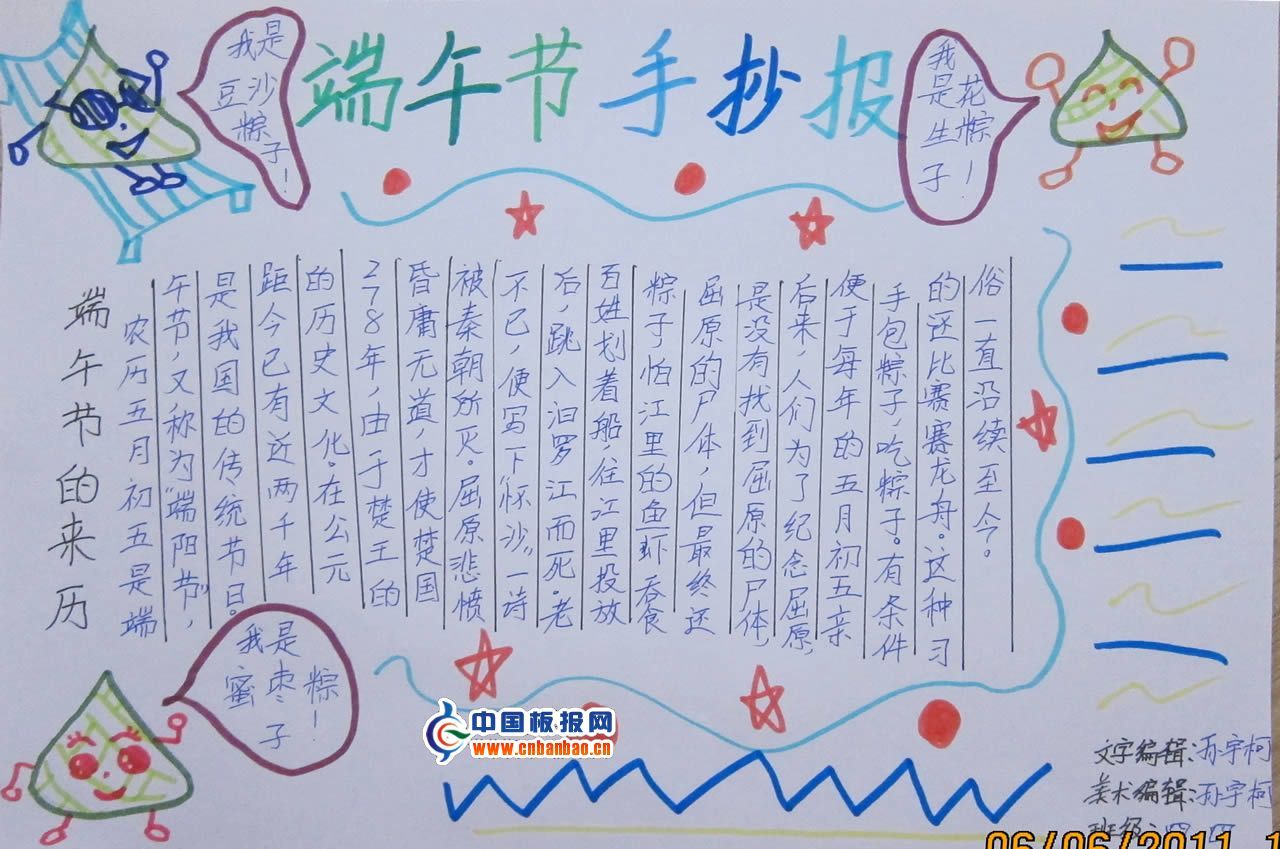 端午节手抄报
我是
豆沙
粽子！
我是花生粽子！
端午节的来历
农历五月初五是端
午节，又称为“端阳节”，
是我国的传统节日。
距今已有近两千年
的历史文化。在公元
278年，由于楚王的
昏庸无道，才使楚国
被秦朝所灭。屈原悲愤
不已，便写下“怀沙”一诗
后，跳入汨罗江而死。老
百姓划着船，往江里投放
粽子怕江里的鱼虾吞食
屈原的尸体，但最终还
是没有找到屈原的尸体，
后来，人们为了纪念屈原，
便于每年的五月初五亲
手包粽子，吃粽子。有条件
的还比赛赛龙舟。这种习
俗一直沿续至今。
我是
蜜枣粽
子！
中国板报网
www.cnbanbao.cn
文字编辑：孙宇柯
美术编辑：孙宇柯
班级：四
06/06/2011 1